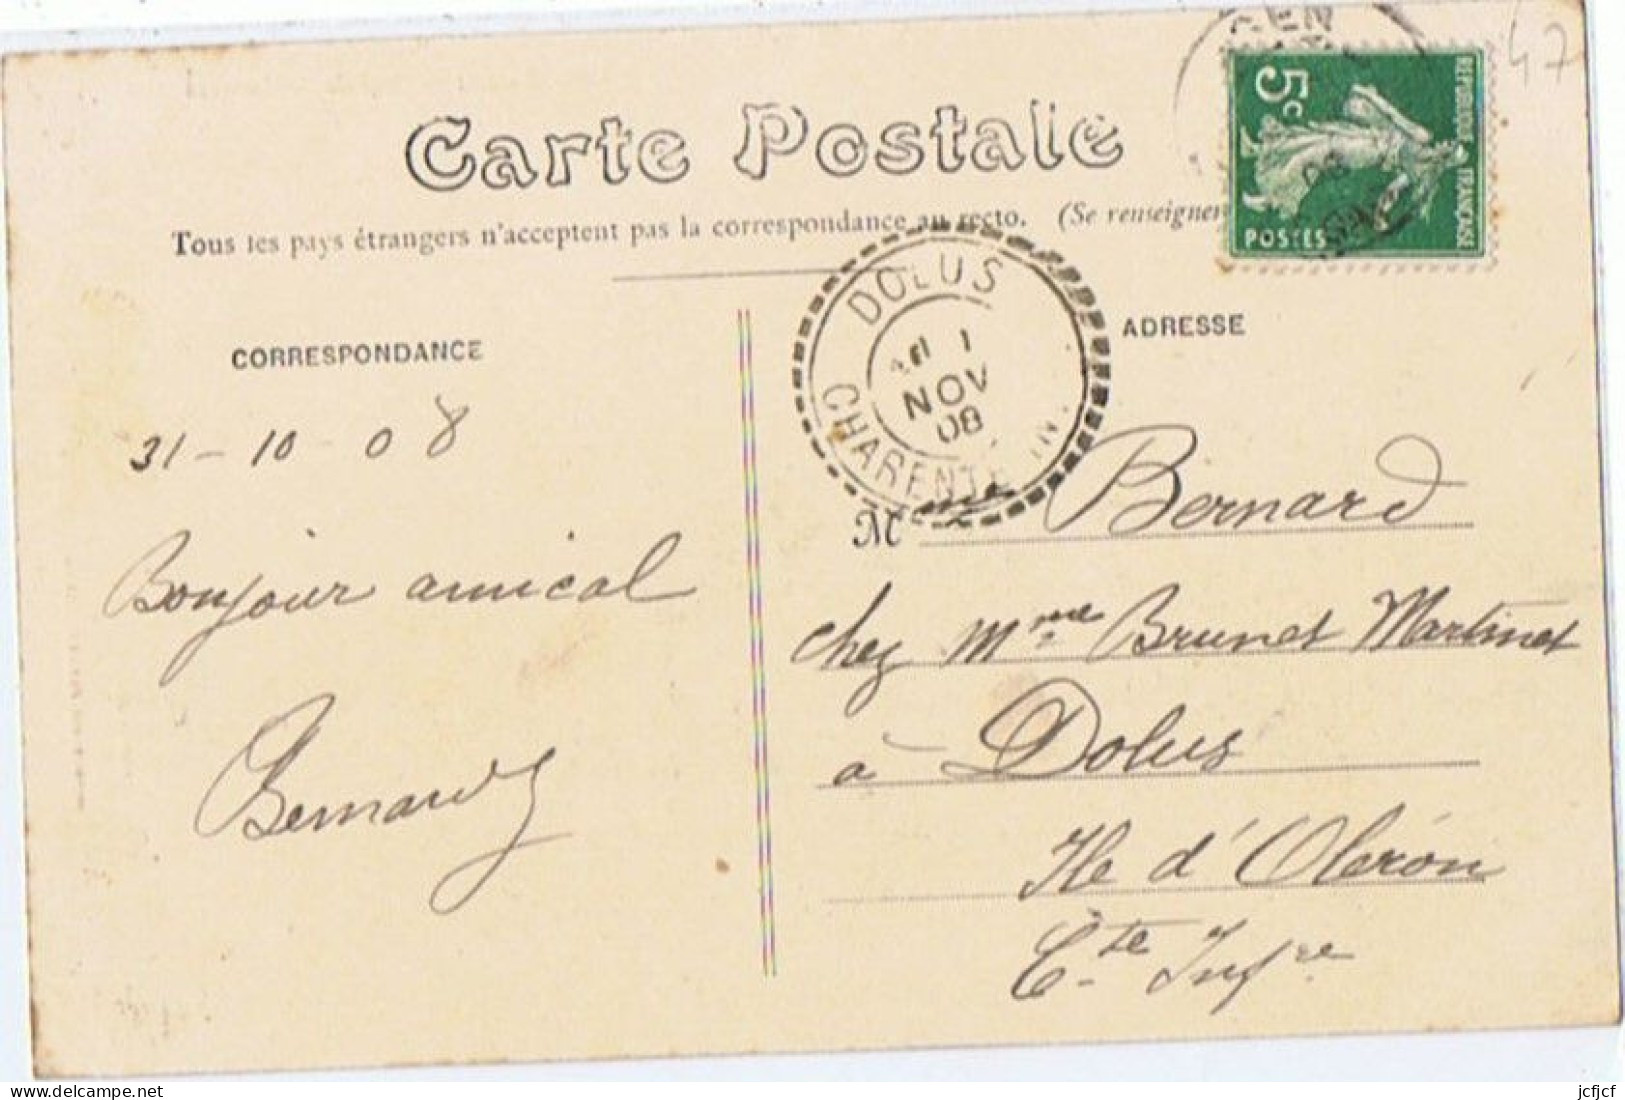 47
5c
RÉPUBLIQUE FRANÇAISE
POSTES
Carte Postale
Tous les pays étrangers n'acceptent pas la correspondance au recto. (Se renseigner
DOLUS
1
NOV
08
CHARENTE IN.
CORRESPONDANCE
ADRESSE
31-10-08
Bonjour amical
Bernard
Mme Bernard
chez Mme Brunet Martinet
à Dolus
Ile d'Oléron
Cte Infre
jcfjcf